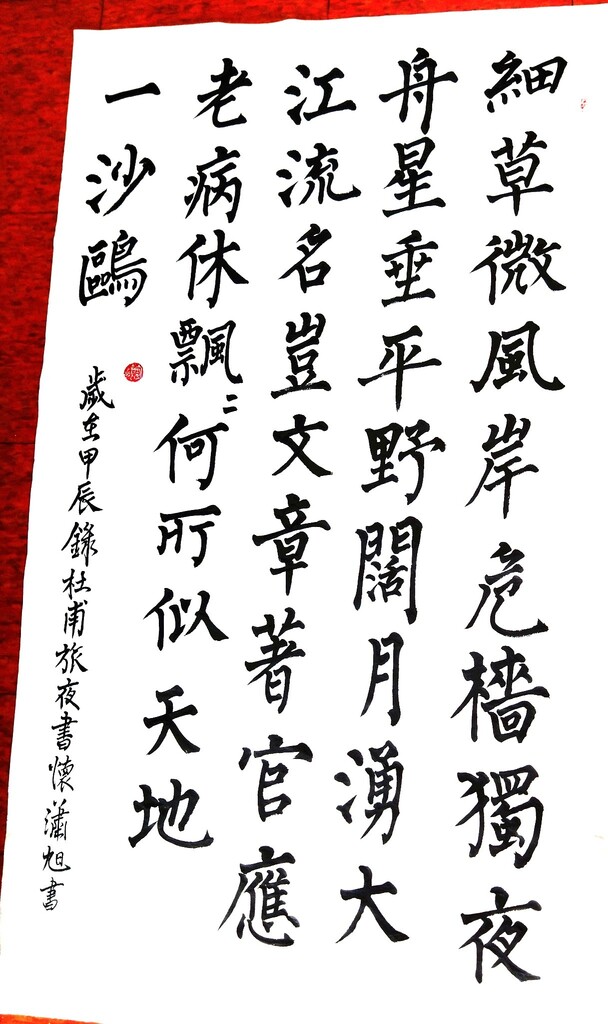 細草微風岸危檣獨夜
舟星垂平野闊月湧大
江流名豈文章著官應
老病休飄二何所似天地
一沙鷗
歲在甲辰錄杜甫旅夜書懷瀟旭書